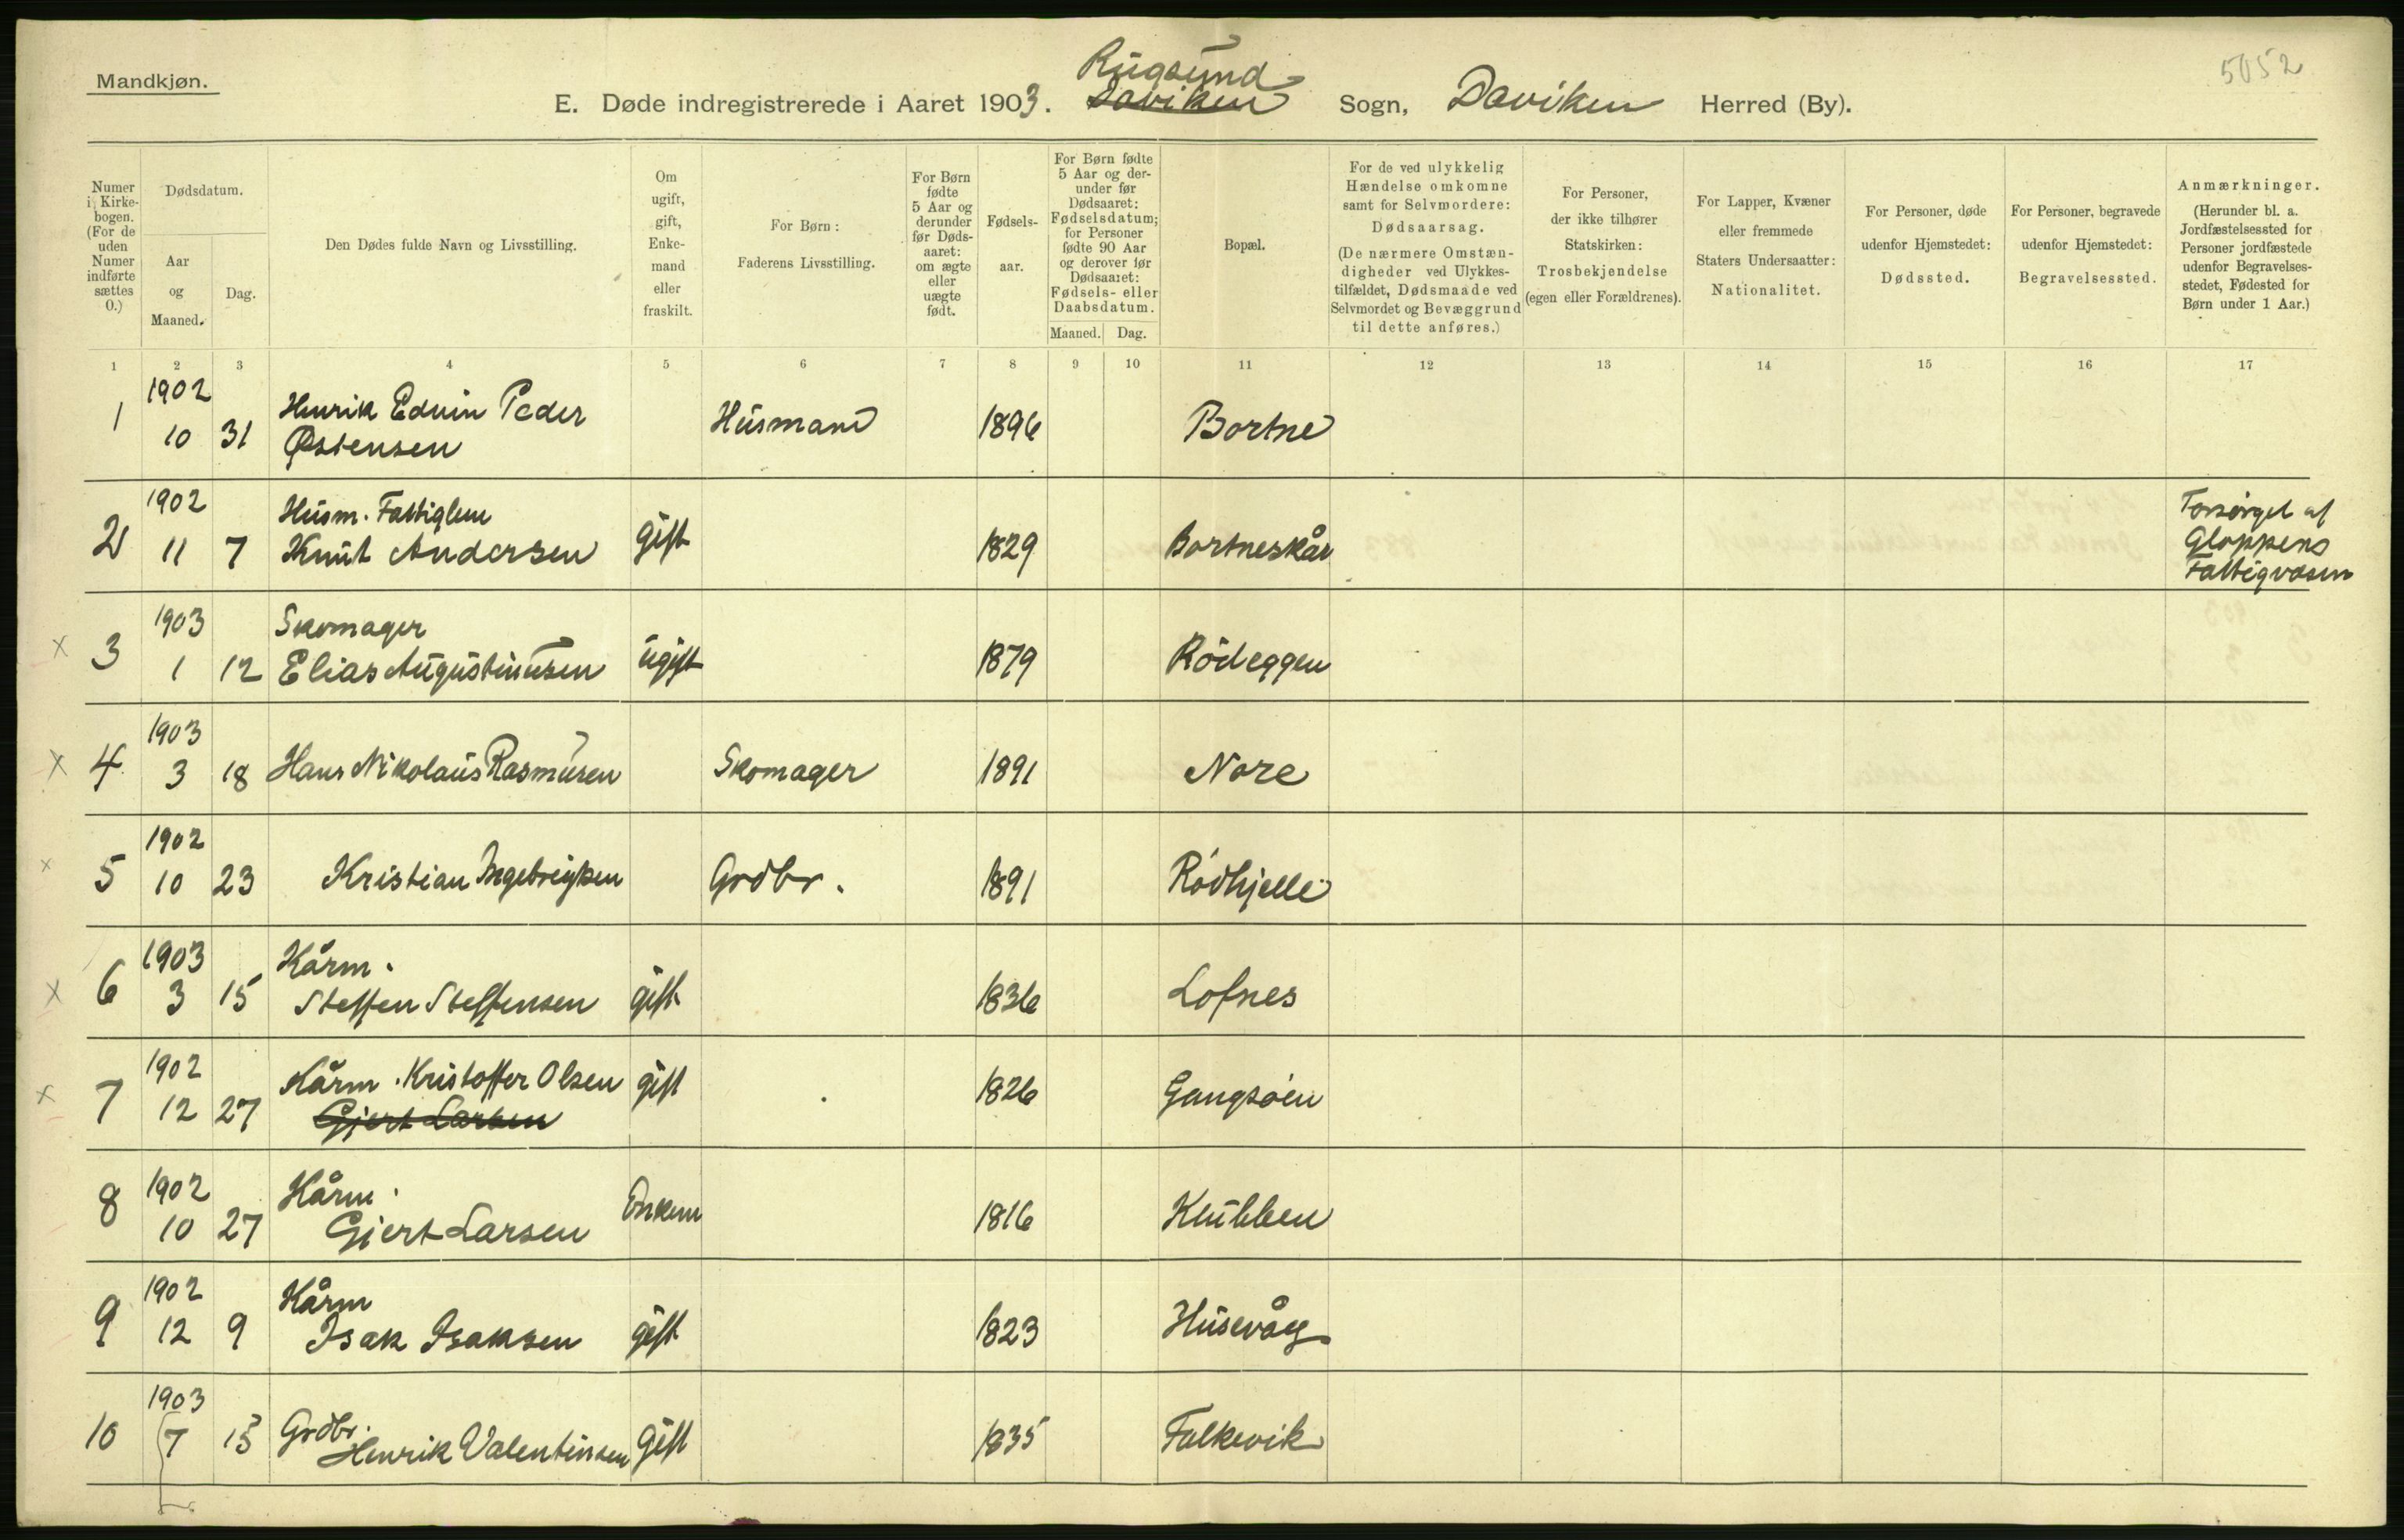 Mandkjøn.
5052
Rugsund
E. Døde indregistrerede i Aaret 1903. Daviken Sogn, Daviken Herred (By).
Numer i Kirkebogen. (For de uden Numer indførte sættes 0.)
Dødsdatum.
Aar og Maaned.
Dag.
Den Dødes fulde Navn og Livsstilling.
Om ugift, gift, Enkemand eller fraskilt.
For Børn: Faderens Livsstilling.
For Børn fødte 5 Aar og derunder før Dødsaaret: om ægte eller uægte født.
Fødselsaar.
For Børn fødte 5 Aar og derunder før Dødsaaret: Fødselsdatum; for Personer fødte 90 Aar og derover før Dødsaaret: Fødsels- eller Daabsdatum.
Maaned. Dag.
Bopæl.
For de ved ulykkelig Hændelse omkomne samt for Selvmordere: Dødsaarsag. (De nærmere Omstændigheder ved Ulykkestilfældet, Dødsmaade ved Selvmordet og Bevæggrund til dette anføres.)
For Personer, der ikke tilhører Statskirken: Trosbekjendelse (egen eller Forældrenes).
For Lapper, Kvæner eller fremmede Staters Undersaatter: Nationalitet.
For Personer, døde udenfor Hjemstedet: Dødssted.
For Personer, begravede udenfor Hjemstedet: Begravelsessted.
Anmærkninger. (Herunder bl. a. Jordfæstelsessted for Personer jordfæstede udenfor Begravelsesstedet, Fødested for Børn under 1 Aar.)
1 2 3 4 5 6 7 8 9 10 11 12 13 14 15 16 17
1902
Henrik Edvin Peder
1 10 31 Østensen Husmand 1896 Bortne
1902 Husm. Fattiglem
2 11 7 Knut Andersen gift 1829 Bortneskår
Forsørget af
Gloppens
Fattigvæsen
1903 Skomager
x 3 1 12 Elias Augustinusen ugift 1879 Rödeggen
1903
x 4 3 18 Hans Nikolaus Rasmusen Skomager 1891 Nore
1902
x 5 10 23 Kristian Ingebrigtsen Grdbr. 1891 Rødhjelle
1903 Kårm.
x 6 3 15 Steffen Steffensen gift 1836 Lofnes
1902 Kårm. Kristoffer Olsen
x 7 12 27 Gjert Larsen gift 1826 Gangsøen
1902 Kårm.
8 10 27 Gjert Larsen Enkem 1816 Klubben
1902 Kårm
9 12 9 Isak Isaksen gift 1823 Husevåg
1903 Grdbr.
10 7 15 Henrik Valentinsen gift 1835 Falkevik